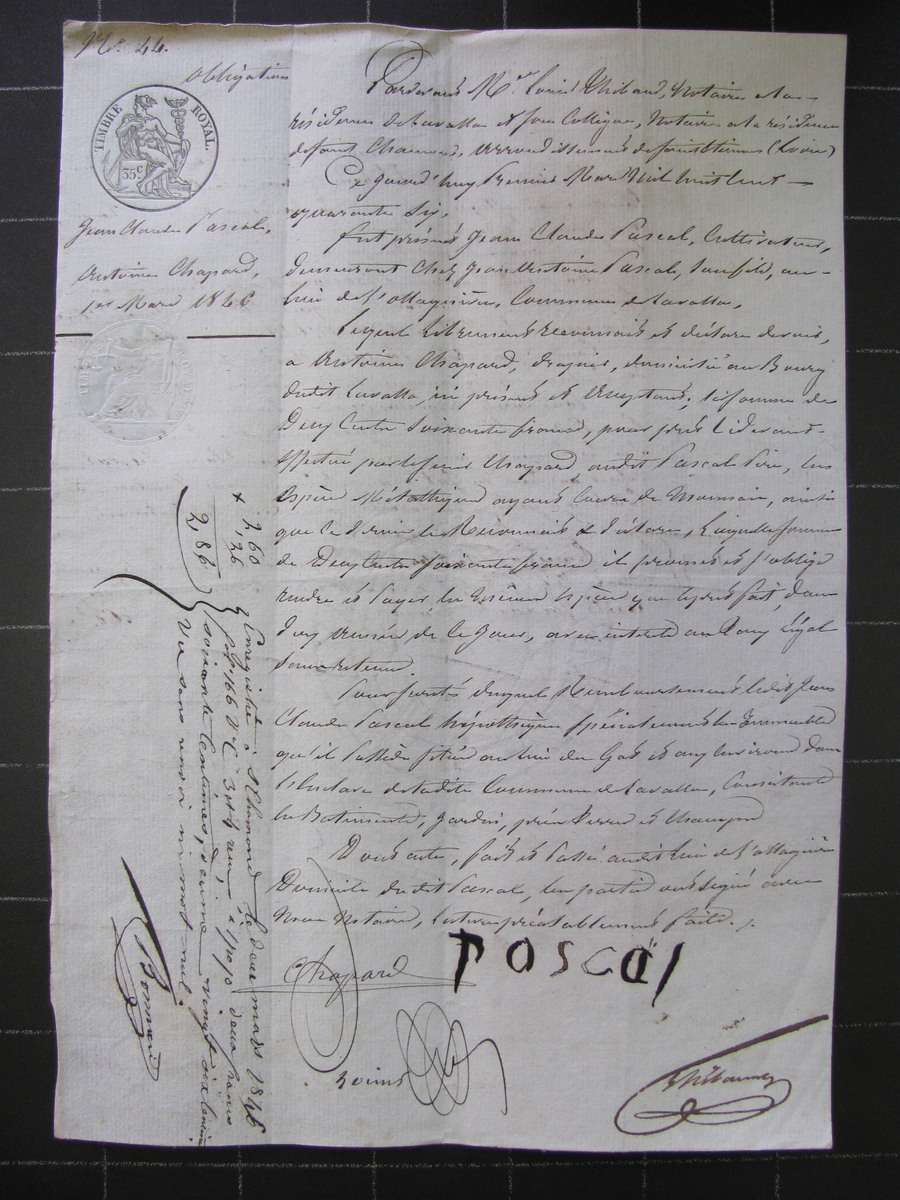 No. 44.
obligation
TIMBRE ROYAL.
35c
Jean Claude Pascal,
Antoine Chapard,
1er Mars 1846
Pardevant Me Louis Thibaud, Notaire à la
résidence de Lavalla et son Collègue, Notaire à la résidence
de Saint Chamond, arrondissement de Saint Etienne (Loire)
Ce jourd'huy Premier Mars Mil huit Cent
quarante Six,
fut présent Jean Claude Pascal, Cultivateur,
demeurant Chez Jean Antoine Pascal, son fils, au
lieu de Commune de Lavalla,
Lequel librement reconnaît et déclare devoir,
à Antoine Chapard, domicilié au Bourg
dudit Lavalla, ici présent et acceptant, la somme de
Deux Cents Soixante francs, pour prêt
effectué par le sieur Chapard audit Pascal Père, en
Espèces Métalliques ayant Cours de Monnaie, ainsi
que ce dernier le Reconnaît et déclare, Laquelle somme
de Deux Cents Soixante francs il promet et s'oblige
rendre et Payer en Mêmes espèces que le prêt fait, dans
Deux années de Ce Jour, avec intérêt au Taux légal
sans retenue.
Pour sureté duquel Remboursement ledit Jean
Claude Pascal hypothèque spécialement les Immeubles
qu'il Possède situés au lieu du Gas et aux Environs dans
l'Enclave de ladite Commune de Lavalla, Consistants
en Batiments, Jardin, prés Terres et Champs
Dont acte, fait et Passé audit lieu de
Domicile dudit Pascal, les parties ont signé avec
Nous Notaires, Lecture préalablement faite.
Chapard
PASCAl
Thibaud
+ 2,60
,26
2,86
Enregistré à St Chamond le deux mars 1846
fol. 166 Vo C. 3 et 4, reçu deux francs
soixante Centimes, décime vingt six centimes
Vu sans renvoi ni mot nul.